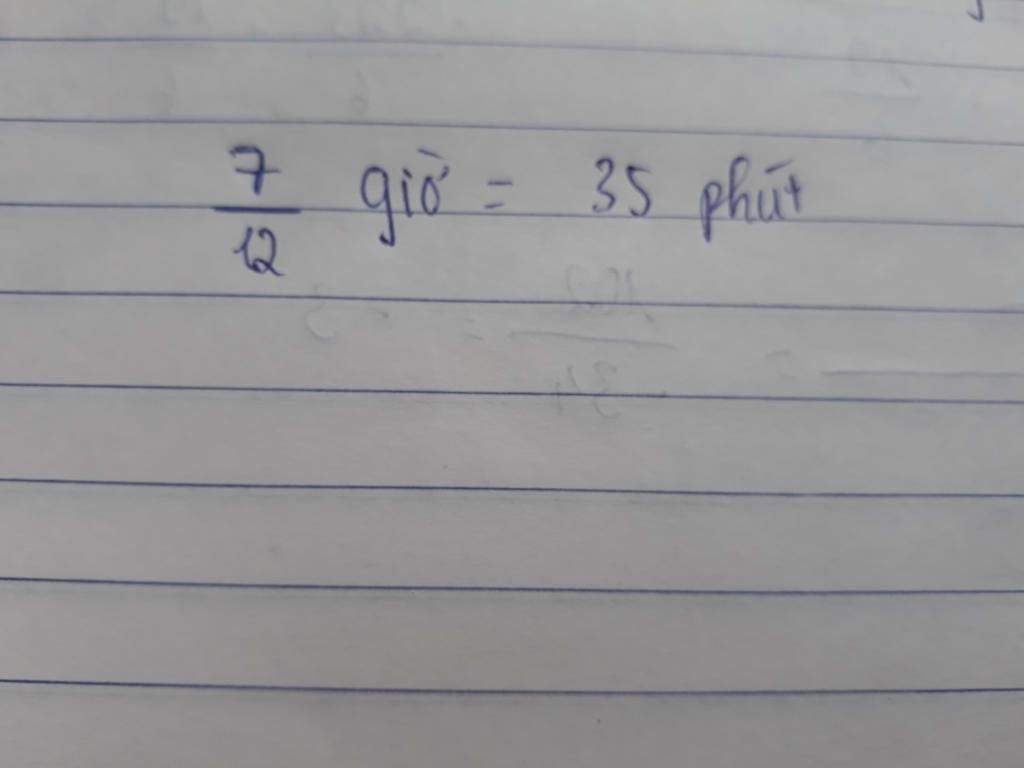 7/12 giờ = 35 phút